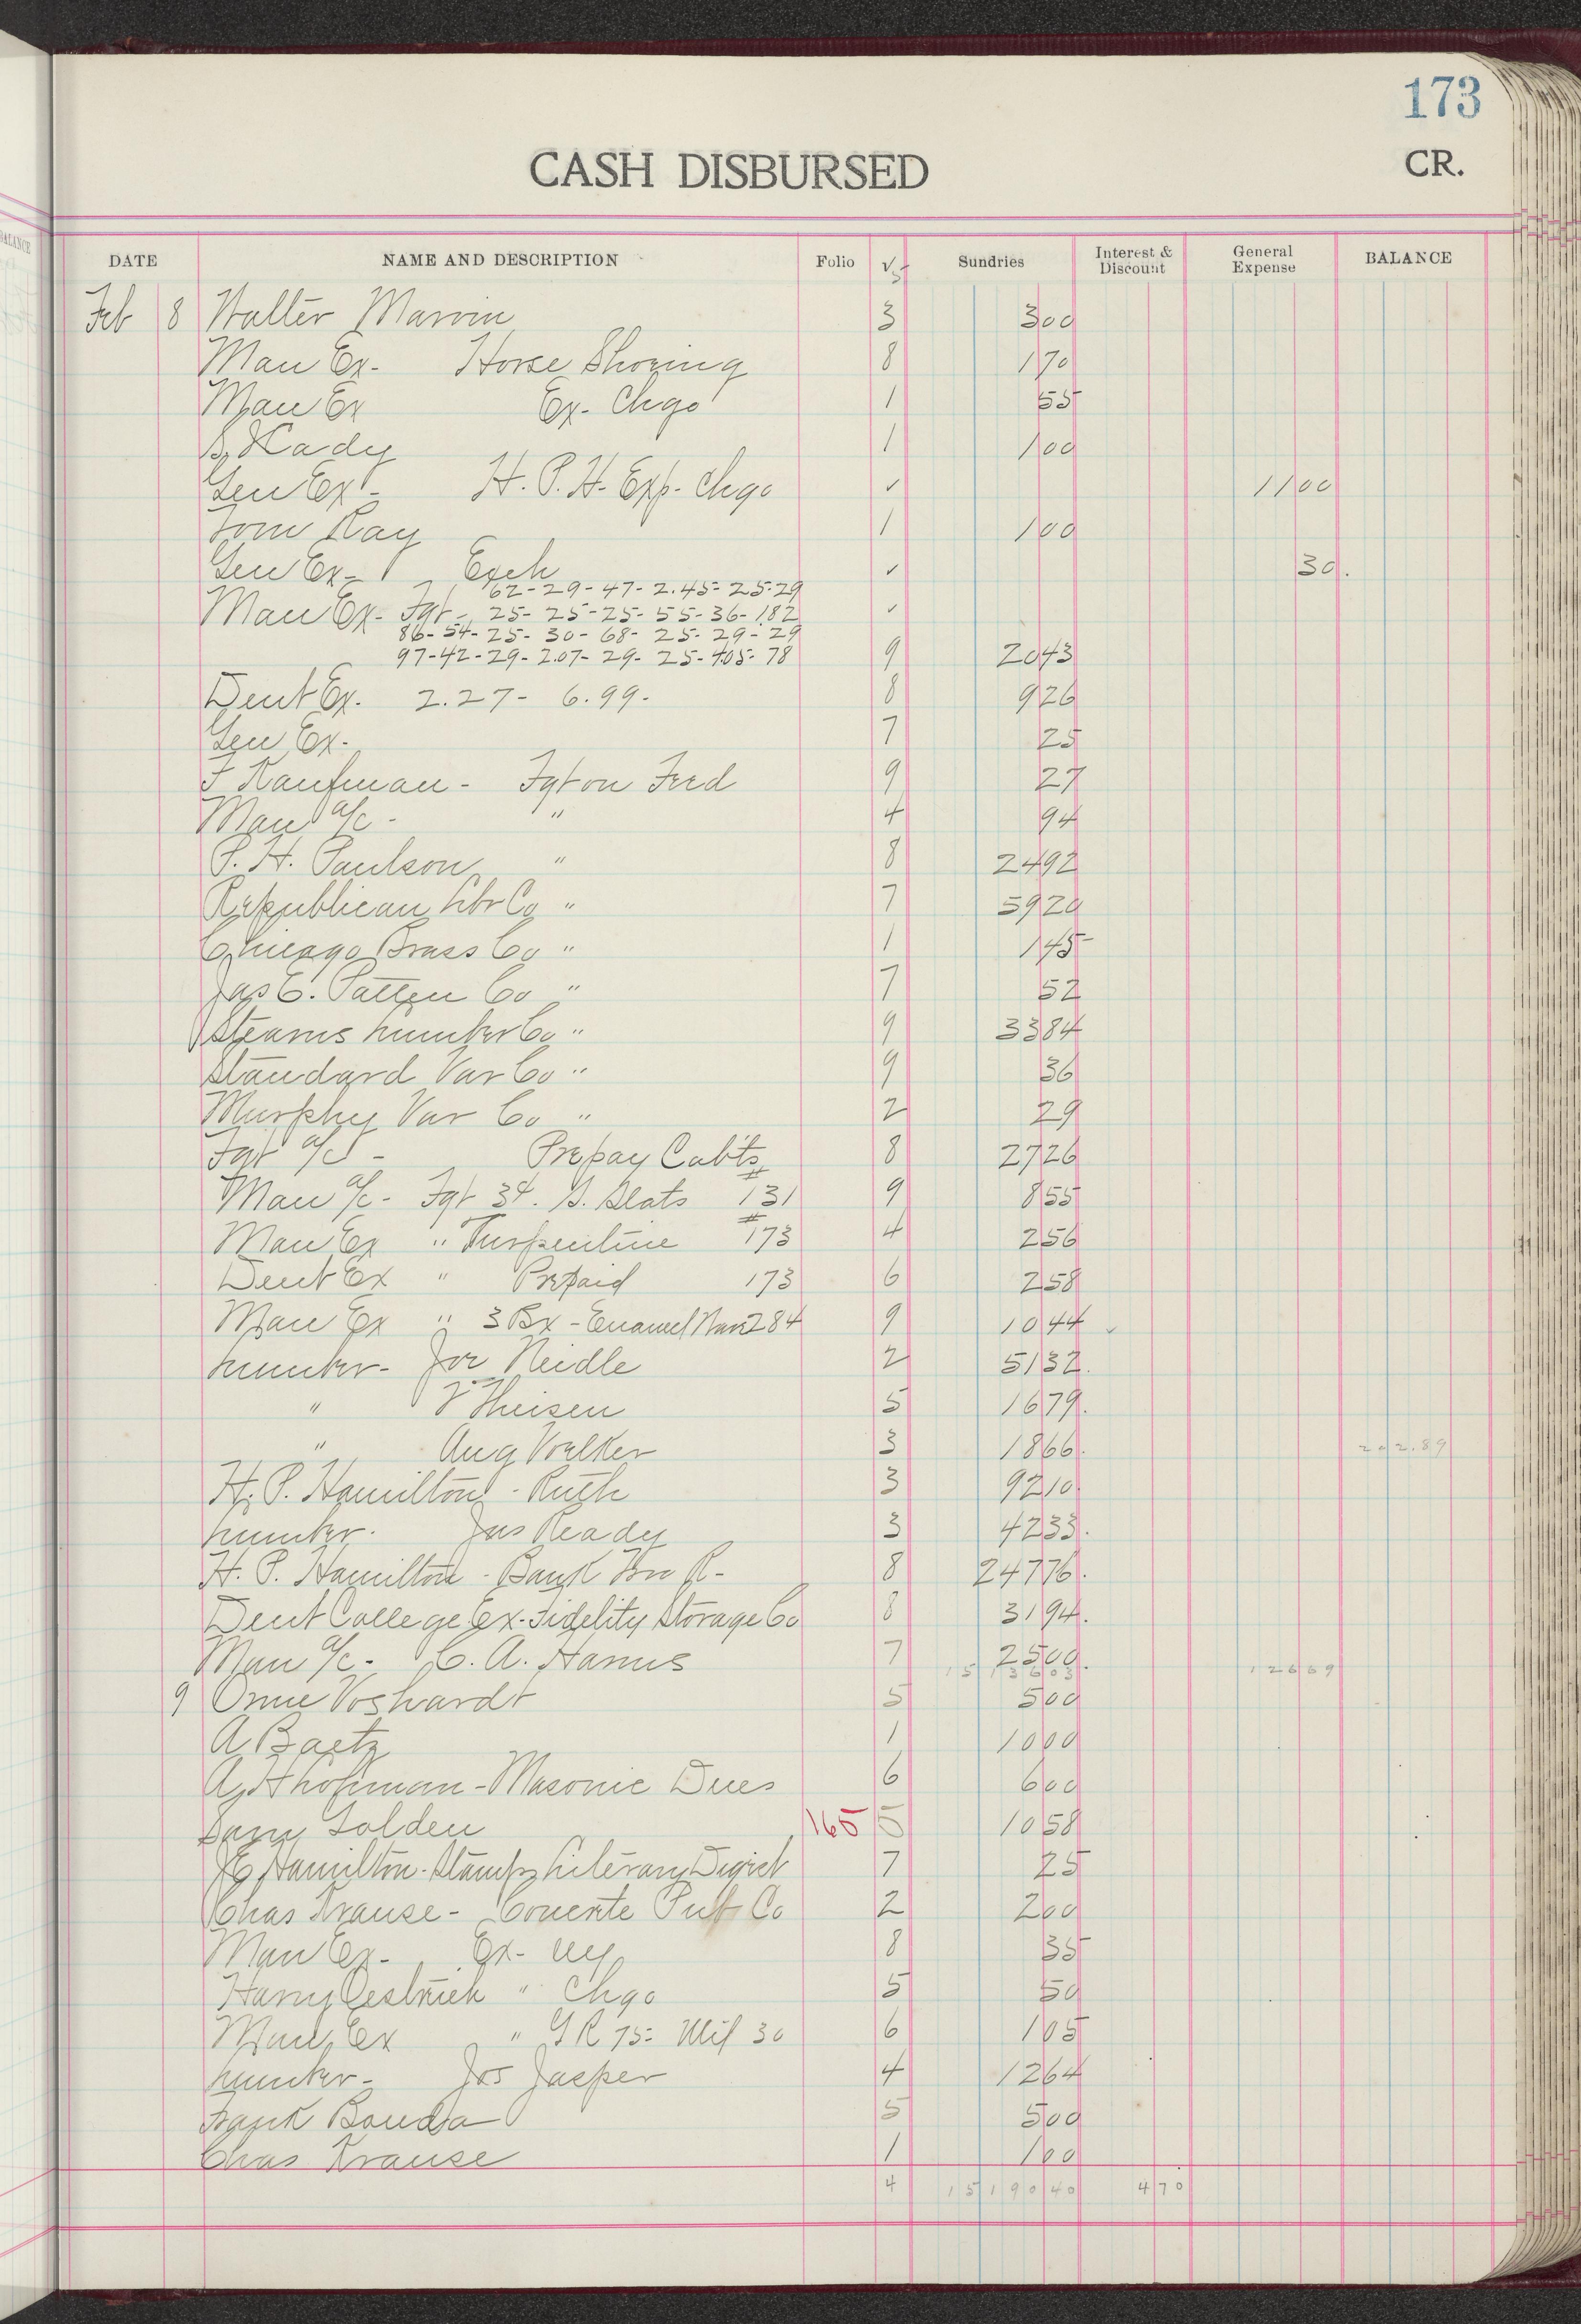 BALANCE
173
CASH DISBURSED CR.
DATE NAME AND DESCRIPTION Folio √ Sundries Interest & Discount General Expense BALANCE
Feb 8 Walter Marvin 3 300
Man Ex- Horse Shoeing 8 170
Man Ex Ex- Chgo 1 55
Kady 1 100
Gen Ex- H. P. H. Exp- Chgo ✓ 1100
Tom Ray 1 100
Gen Ex- Exch ✓ 30.
62-29-47-2.45-25-29
Man Ex- Fgt- 25-25-25-55-36-182 ✓
86-54-25-30-68-25-29-29
97-42-29-2.07-29-25-4.05-78 9 2043
Dent Ex. 2.27- 6.99- 8 926
Gen Ex- 7 25
F Kaufman- Fgt on Frd 9 27
Man a/c - " 4 94
P. H. Paulson " 8 2492
Republican Lbr Co " 7 5920
Chicago Brass Co " 1 145
Jas E. Patten Co " 7 52
Stearns Lumber Co " 9 3384
Standard Var Co " 9 36
Murphy Var Co " 2 29
Fgt a/c - Prepay Cab'ts 8 2726
Man a/c - Fgt 34. S. Slats #131 9 855
Man Ex " Turpentine #173 4 256
Dent Ex " Prepaid 173 6 258
Man Ex " 3 Bx - Enamel 284 9 1044 ✓
Lumber- Joe Neidle 2 5132.
" V Theisen 5 1679.
" Aug Voelker 3 1866. 202.89
H. P. Hamilton - Ruth 3 9210.
Lumber. Jas Ready 3 4233.
H. P. Hamilton - Bank R- 8 24776.
Dent College Ex- Fidelity Storage Co 8 3194.
Man a/c - C. A. Hamus 7 2500.
1513603 12669
9 Orme Voshardt 5 500
A Baetz 1 1000
A. Hhofman - Masonic Dues 6 600
Sam Golden 165 5 1058
Hamilton- Stamps Literary Digest 7 25
Chas Krause- Concrete Pub Co 2 200
Man Ex- Ex- 8 35
Harry Oestrich " Chgo 5 50
Man Ex " G R 75- Mil 30 6 105
Lumber- Jos Jasper 4 1264
Frank Bouda 5 500
Chas Krause 1 100
4 1519040 470